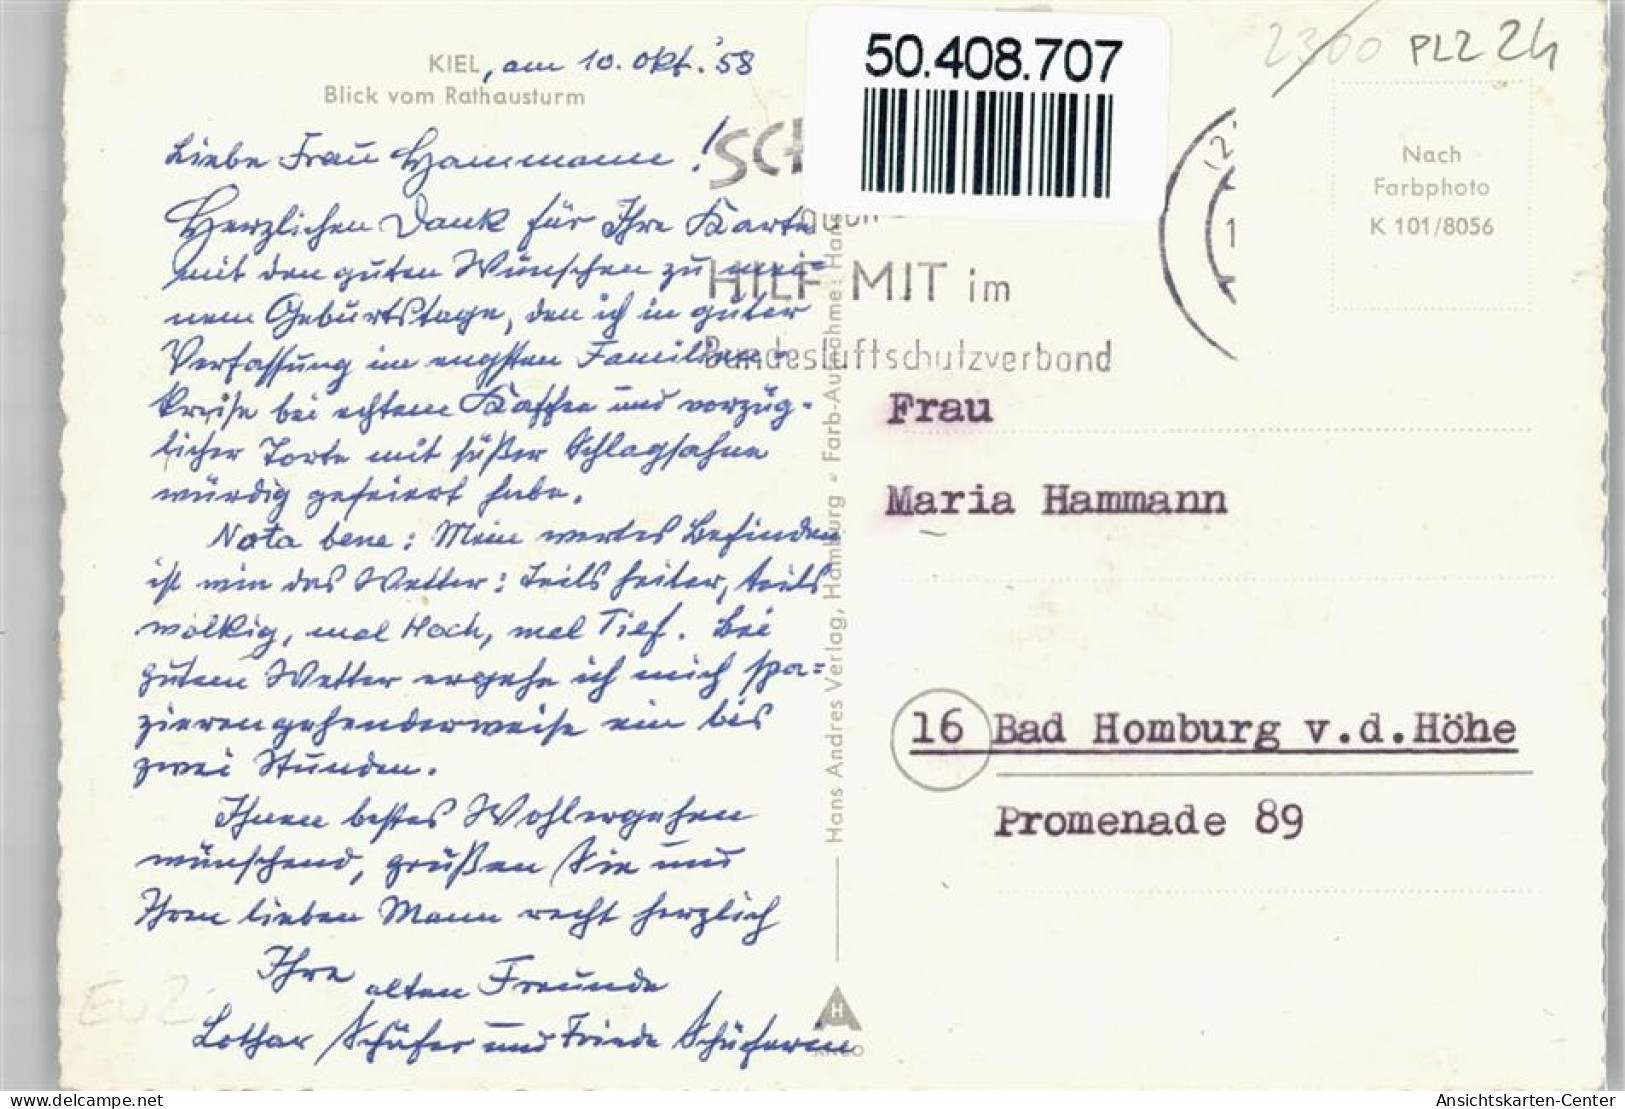 KIEL, am 10. Okt. '58
Blick vom Rathausturm
Liebe Frau Hammann!
Herzlichen Dank für Ihre Karte
mit den guten Wünschen zu mei=
nem Geburtstage, den ich in guter
Verfassung im engsten Familien-
kreise bei echtem Kaffee und vorzüg-
licher Torte mit süßer Schlagsahne
würdig gefeiert habe.
Nota bene: Mein wertes Befinden
ist wie das Wetter: teils heiter, teils
wolkig, mal Hoch, mal Tief. Bei
gutem Wetter ergehe ich mich spa=
zierengehenderweise ein bis
zwei Stunden.
Ihnen bestes Wohlergehen
wünschend, grüßen Sie und
Ihren lieben Mann recht herzlich
Ihre alten Freunde
Lothar Schäfer und Friede Schäferin
EuZ
Hans Andres Verlag, Hamburg - Farb-Aufnahme: Hans
H
ANDO
50.408.707
SCH
HILF MIT im
Bundesluftschutzverband
2300 PLZ 24
Nach
Farbphoto
K 101/8056
Frau
Maria Hammann
16 Bad Homburg v.d.Höhe
Promenade 89
https://www.delcampe.net
Ansichtskarten-Center